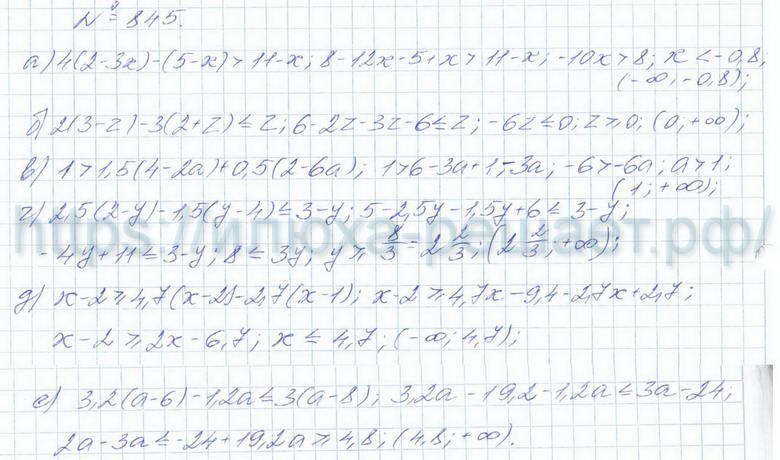 № 845.
а) 4(2-3x)-(5-x)>11-x; 8-12x-5+x>11-x; -10x>8; x<-0,8;
(-∞; -0,8);
б) 2(3-z)-3(2+z)≤z; 6-2z-3z-6≤z; -6z≤0; z≥0; (0; +∞);
в) 1>1,5(4-2a)+0,5(2-6a); 1>6-3a+1-3a; -6>-6a; a>1;
(1; +∞);
г) 2,5(2-y)-1,5(y-4)≤3-y; 5-2,5y-1,5y+6≤3-y;
https://илюха-решает.рф/
-4y+11≤3-y; 8≤3y; y≥8/3=2 2/3; (2 2/3; +∞);
д) x-2≥4,7(x-2)-2,7(x-1); x-2≥4,7x-9,4-2,7x+2,7;
x-2≥2x-6,7; x≤4,7; (-∞; 4,7);
е) 3,2(a-6)-1,2a≤3(a-8); 3,2a-19,2-1,2a≤3a-24;
2a-3a≤-24+19,2 a≥4,8; (4,8; +∞).